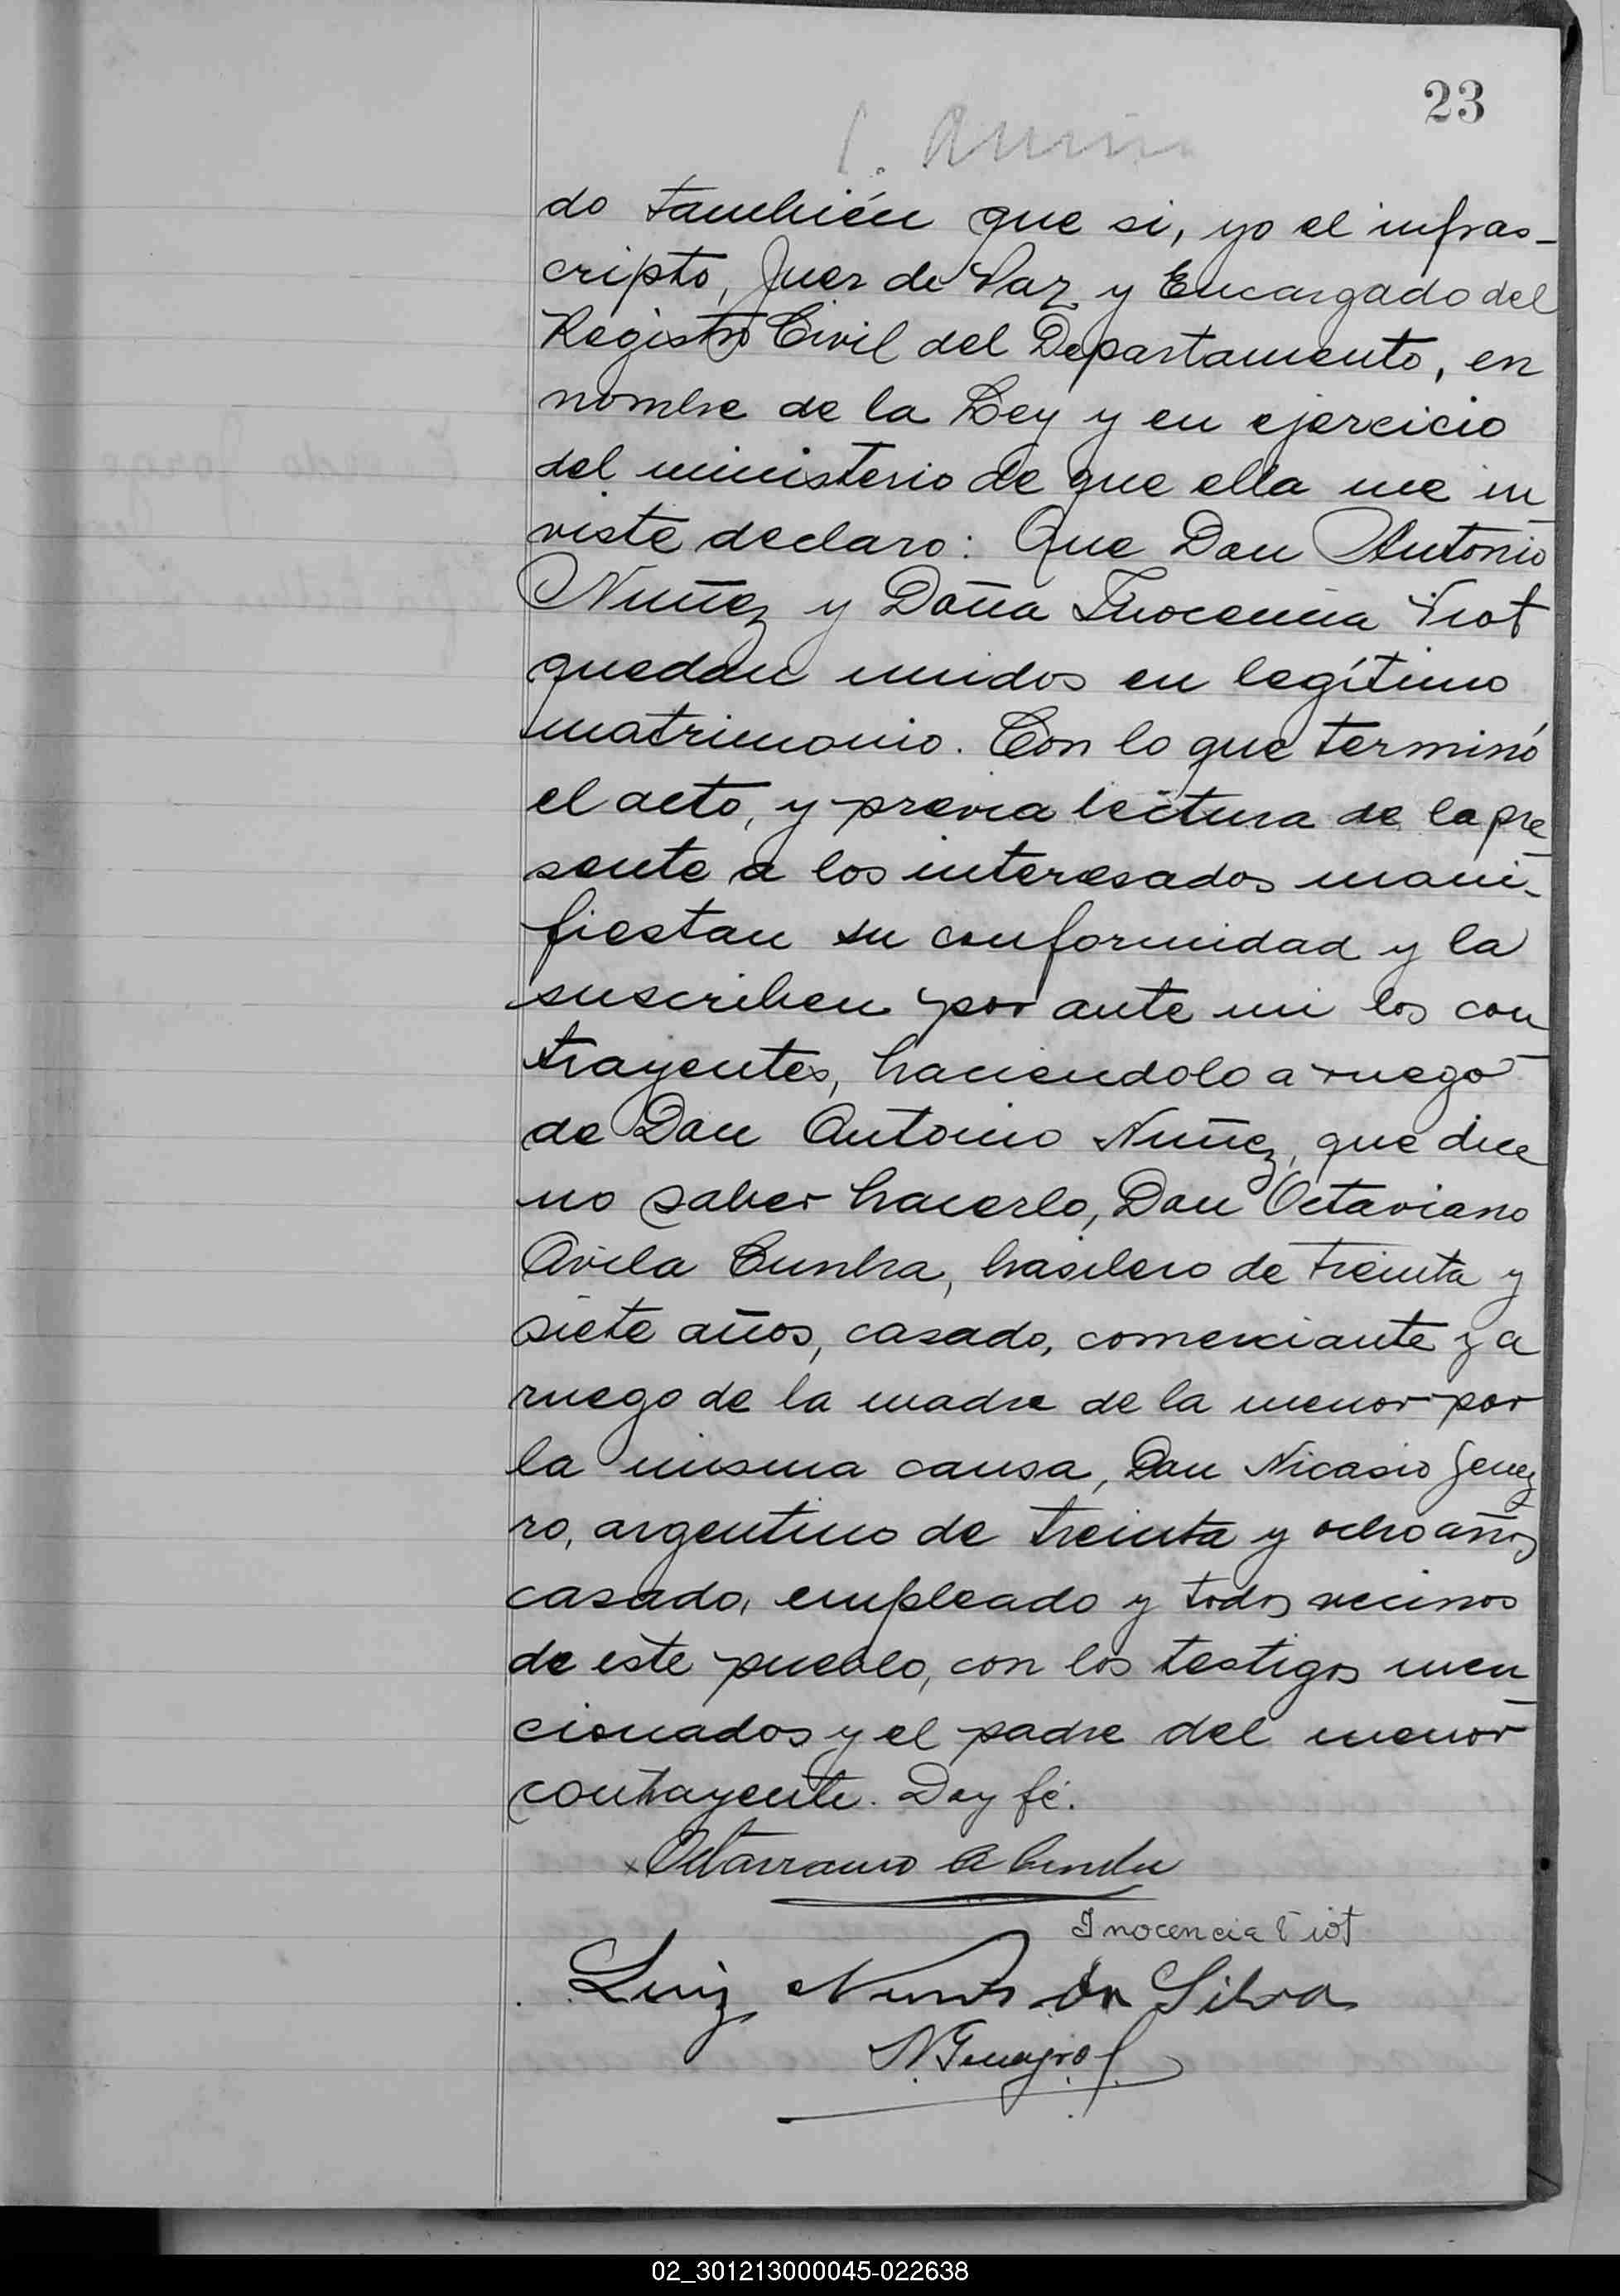 23
do también que si, yo el infras-
cripto, Juez de Paz y Encargado del
Registro Civil del Departamento, en
nombre de la Ley y en ejercicio
del ministerio de que ella me in
viste declaro: Que Don Antonio
Nuñez y Doña Inocencia Viot
quedan unidos en legítimo
matrimonio. Con lo que terminó
el acto, y previa lectura de la pre
sente a los interesados mani-
fiestan su conformidad y la
suscriben por ante mi los con
trayentes, haciendolo a ruego
de Don Antonio Nuñez, que dice
no saber hacerlo, Don Octaviano
Avila Cunha, brasilero de treinta y
siete años, casado, comerciante y a
ruego de la madre de la menor por
la misma causa, Don Nicasio Genez
ro, argentino de treinta y ocho años
casado, empleado y todos vecinos
de este pueblo, con los testigos men
cionados y el padre del menor
contrayente. Doy fé.
Octaviano A Cunha
Inocencia Viot
Luiz Nunes da Silva
02_301213000045-022638